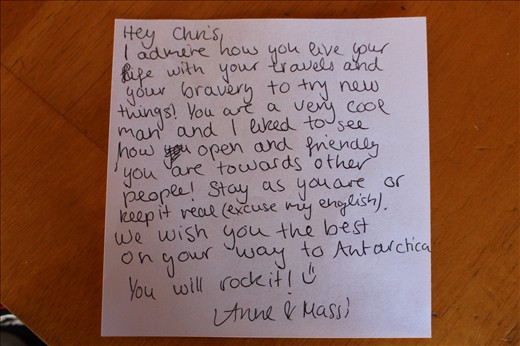 Hey Chris,
I admire how you live your
life with your travels and
your bravery to try new
things! You are a very cool
man and I liked to see
how open and friendly
you are towards other
people! Stay as you are or
keep it real (excuse my english).
We wish you the best
on your way to Antarctica
You will rock it! ☺
Anne & Massi